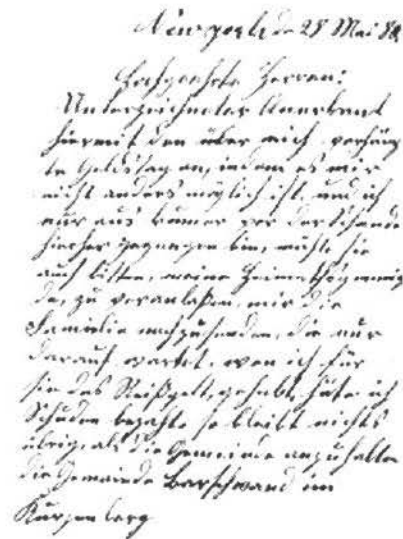 Newyork de 28 Mai 88
Hochgeehrte Herren:
Unterzeichneter Anerkent
hiermit den über mich verhäng
te Geldstag an, indem es mir
nicht anders möglich ist, und ich
nur aus kumer vor der Schande
hierher gegangen bin, möchte sie
auch bitten, meine Heimethsgemein
de, zu veranlaßen, mir die
Familie nachzusenden, die nur
darauf wartet, wen ich für
sie das Reißgelt, gehabt häte. ich
Schulden bezahlt, so bleibt nichts
übrig, als die Gemeinde anzuhalten
die Gemeinde Barschwand im
Kurzenberg